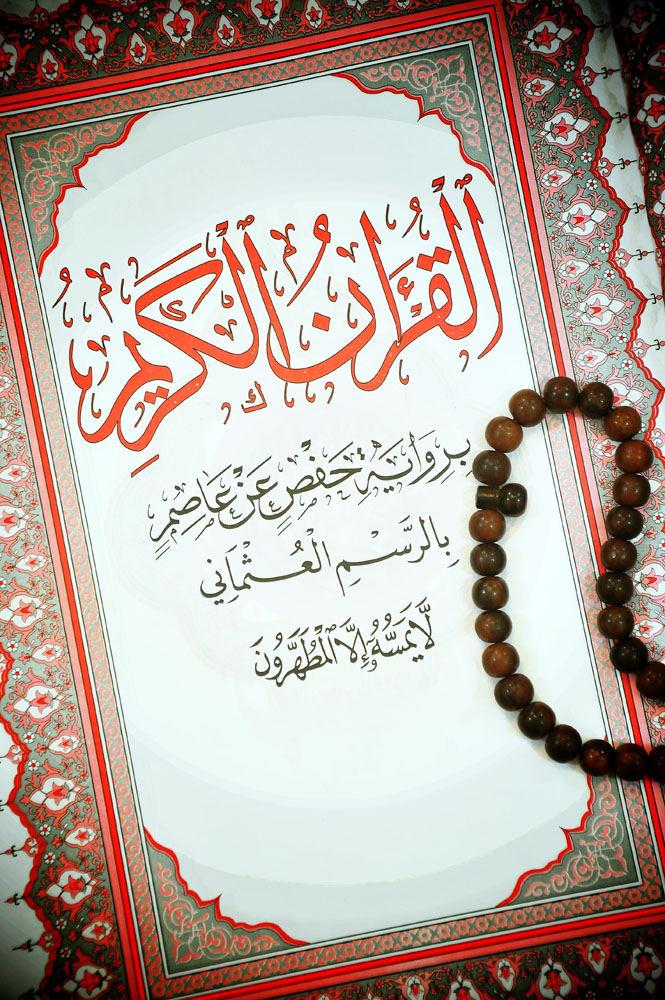 الْقُرْءَانُ الْكَرِيمُ
بِرِوَايَةِ حَفْصٍ عَنْ عَاصِمٍ
بِالرَّسْمِ الْعُثْمَانِي
لَّا يَمَسُّهُ إِلَّا الْمُطَهَّرُونَ